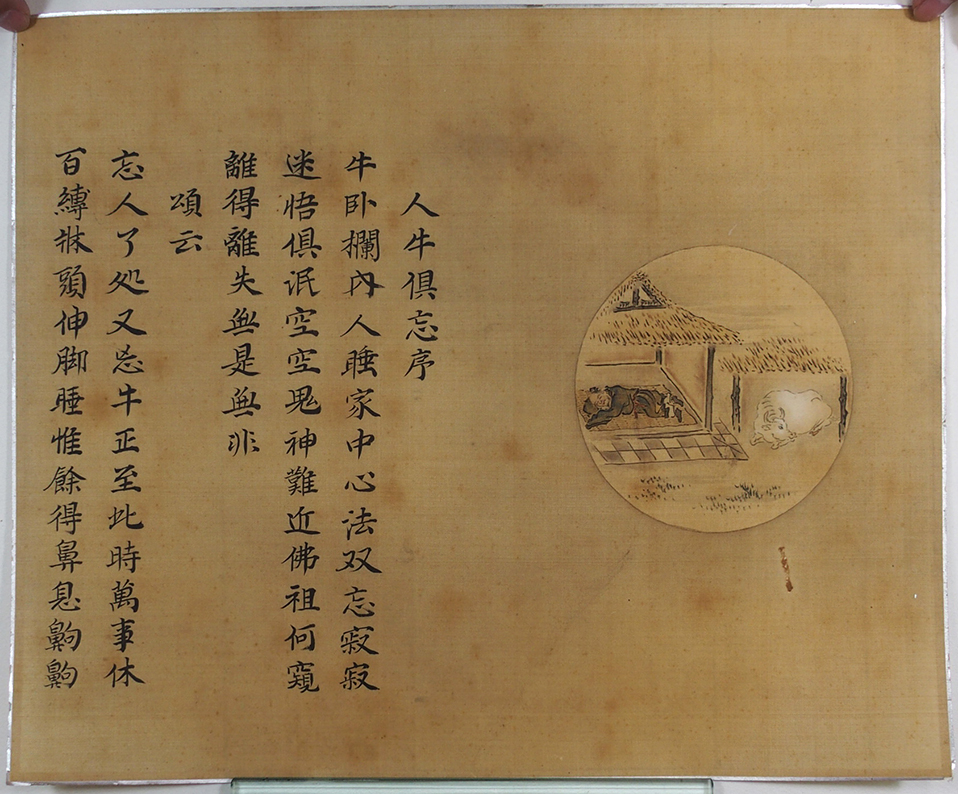 人牛俱忘序
牛卧欄内人睡家中心法双忘寂寂
迷悟俱泯空空鬼神難近佛祖何窺
離得離失無是無非
頌云
忘人了処又忘牛正至此時萬事休
百縛牀頭伸脚睡惟餘得鼻息齁齁